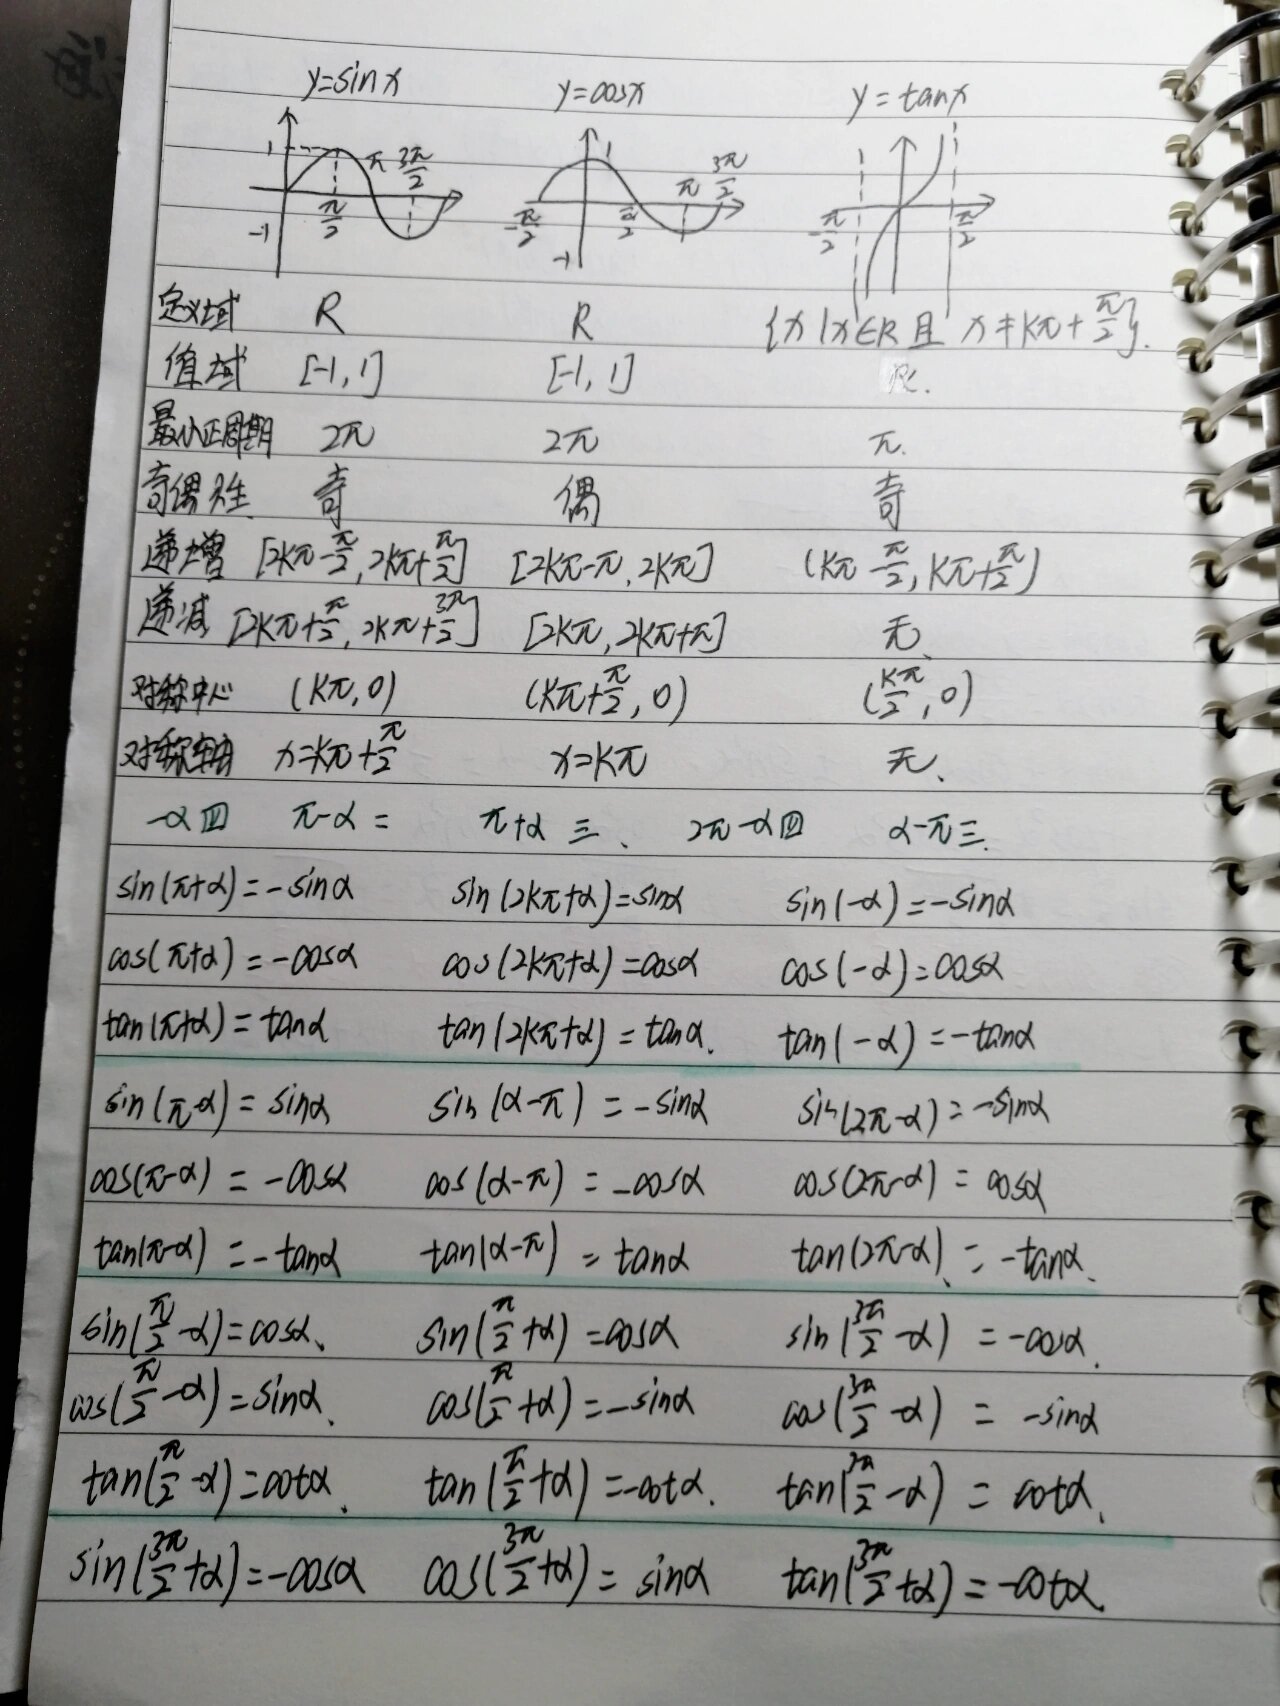 y=sinx y=cosx y=tanx
1 π 3π/2 1 π 3π/2
π/2 -π/2 π/2 -π/2 π/2
-1 -1
定义域 R R {x|x∈R且 x≠kπ+π/2}.
值域 [-1,1] [-1,1] R.
最小正周期 2π 2π π.
奇偶性 奇 偶 奇
递增 [2kπ-π/2,2kπ+π/2] [2kπ-π,2kπ] (kπ-π/2,kπ+π/2)
递减 [2kπ+π/2,2kπ+3π/2] [2kπ,2kπ+π] 无、
对称中心 (kπ,0) (kπ+π/2,0) (kπ/2,0)
对称轴 x=kπ+π/2 x=kπ 无、
-α四 π-α二 π+α三、 2π-α四 α-π三.
sin(π+α)=-sinα sin(2kπ+α)=sinα sin(-α)=-sinα
cos(π+α)=-cosα cos(2kπ+α)=cosα cos(-α)=cosα
tan(π+α)=tanα tan(2kπ+α)=tanα. tan(-α)=-tanα
sin(π-α)=sinα sin(α-π)=-sinα sin(2π-α)=-sinα
cos(π-α)=-cosα cos(α-π)=-cosα cos(2π-α)=cosα
tan(π-α)=-tanα tan(α-π)=tanα tan(2π-α)、=-tanα、
sin(π/2-α)=cosα、 sin(π/2+α)=cosα sin(3π/2-α)=-cosα.
cos(π/2-α)=sinα、 cos(π/2+α)=-sinα cos(3π/2-α)=-sinα
tan(π/2-α)=cotα、 tan(π/2+α)=-cotα. tan(3π/2-α)=cotα、
sin(3π/2+α)=-cosα cos(3π/2+α)=sinα tan(3π/2+α)=-cotα.